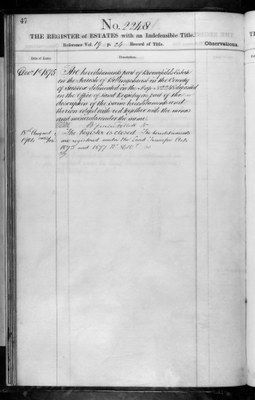 47
No. 2248
THE REGISTER of ESTATES with an Indefeasible Title.
Reference Vol. 19 & 26. Record of Title.
Observations.
Date of Entry
Description.
Decr 1st 1875
All hereditaments part of Broomfield Estate
in the Parish of in the County
of Sussex delineated in the Map No 2248 deposited
in the Office of Land Registry as part of the
description of the same hereditaments and
thereon edged with red together with the mines
and minerals under the same
18th August
1906
The Register is closed. The hereditaments
are registered under the Land Transfer Acts
1875 and 1897